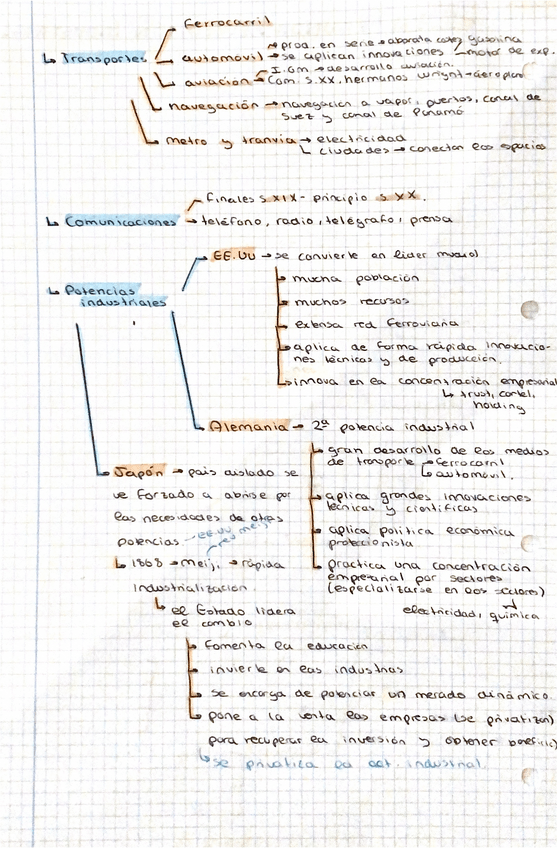 Ferrocarril
prod. en serie → abarata costes gasolina
↳ Transportes automóvil → se aplican innovaciones motor de exp.
I.GM → desarrollo aviación.
aviación → Com. S.XX, hermanos Wright → aeroplano
navegación → navegación a vapor, puertos, canal de
Suez y canal de Panamá
metro y tranvía → electricidad
↳ ciudades → conectar los espacios
finales S XIX - principio S XX.
↳ Comunicaciones → teléfono, radio, telégrafo, prensa
EE.UU → se convierte en líder mundial
↳ Potencias
industriales
mucha población
muchos recursos
extensa red ferroviaria
aplica de forma rápida innovacio-
nes técnicas y de producción.
innova en la concentración empresarial
↳ trust, cartel,
holding
Alemania → 2ª potencia industrial
gran desarrollo de los medios
de transporte ferrocarril
automóvil.
aplica grandes innovaciones
técnicas y científicas
aplica política económica
proteccionista
practica una concentración
empresarial por sectores
(especializarse en dos sectores)
electricidad, química
Japón → país aislado se
ve forzado a abrirse por
las necesidades de otras
potencias EE.UU
↳ 1868 → Meiji → rápida
industrialización.
↳ el Estado lidera
el cambio
fomenta la educación
invierte en las industrias
se encarga de potenciar un mercado dinámico.
pone a la venta las empresas (se privatizan)
para recuperar la inversión y obtener beneficio
↳ se privatiza la act. industrial.